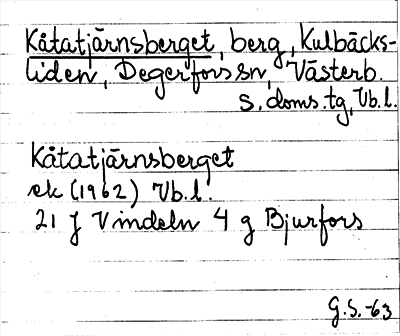 Kåtatjärnsberget, berg, Kulbäcks-
liden, Degerfors sn, Västerb.
s. doms. tg, Vb. l.
Kåtatjärnsberget
ek (1962) Vb. l.
21 J Vindeln 4 g Bjurfors
G.S.-63